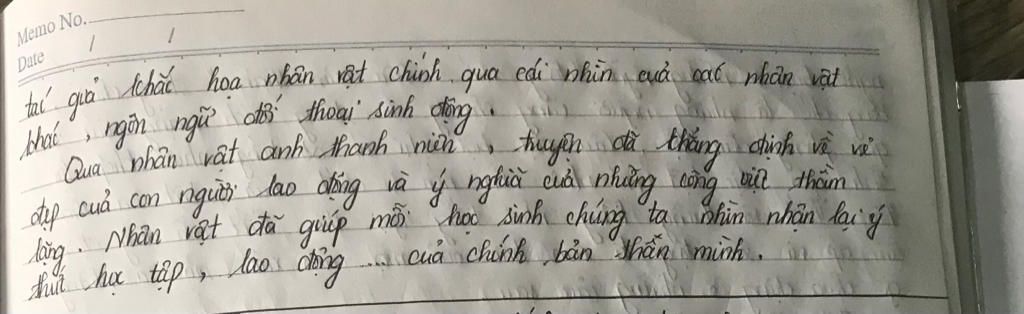 Memo No.
Date / /
tác giả khắc họa nhân vật chính qua cái nhìn của các nhân vật
khác, ngôn ngữ đối thoại sinh động.
Qua nhân vật anh thanh niên, truyện đã khẳng định về vẻ
đẹp của con người lao động và ý nghĩa của những công việc thầm
lặng. Nhân vật đã giúp mỗi học sinh chúng ta nhìn nhận lại ý
thức học tập, lao động ... của chính bản thân mình.